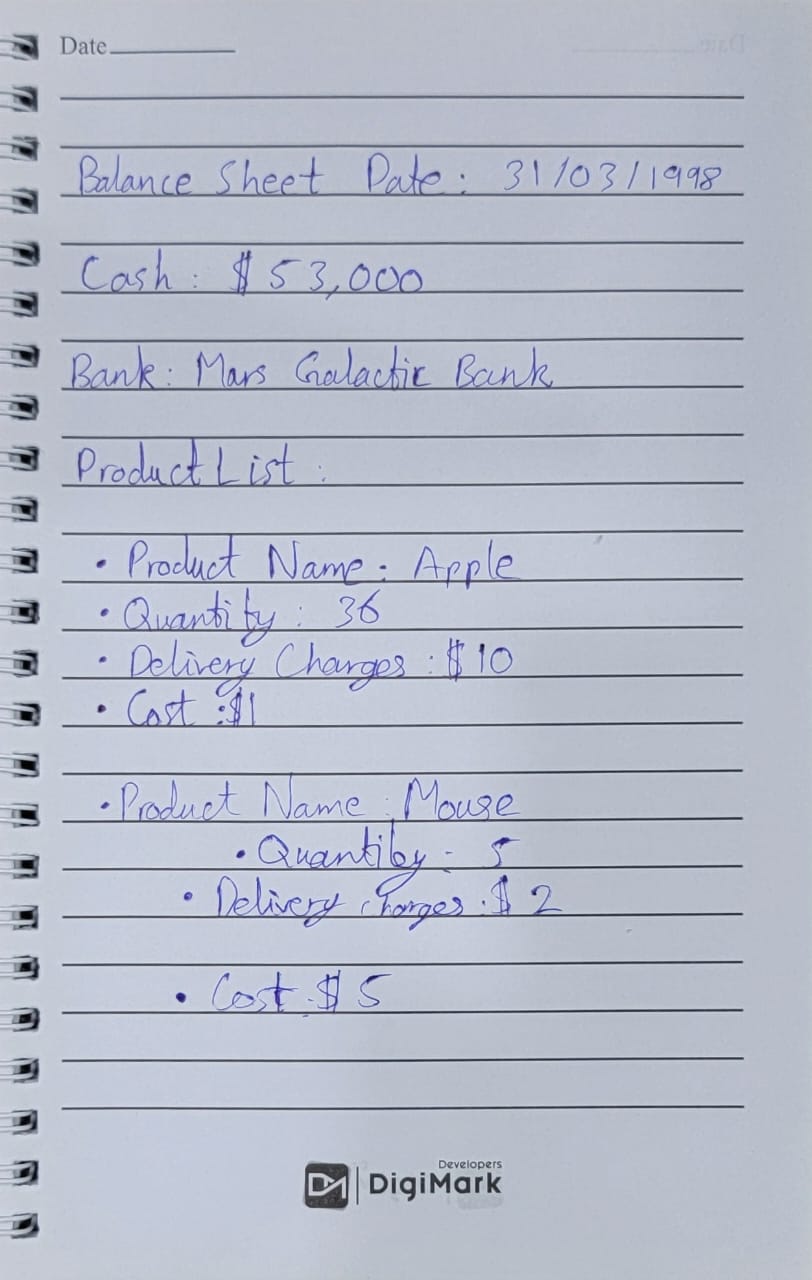 Date
Balance Sheet Date: 31/03/1998
Cash: $53,000
Bank: Mars Galactic Bank
Product List:
• Product Name: Apple
• Quantity: 36
• Delivery Charges: $10
• Cost: $1
• Product Name: Mouse
• Quantity: 5
• Delivery Charges: $2
• Cost: $5
Developers
DM DigiMark